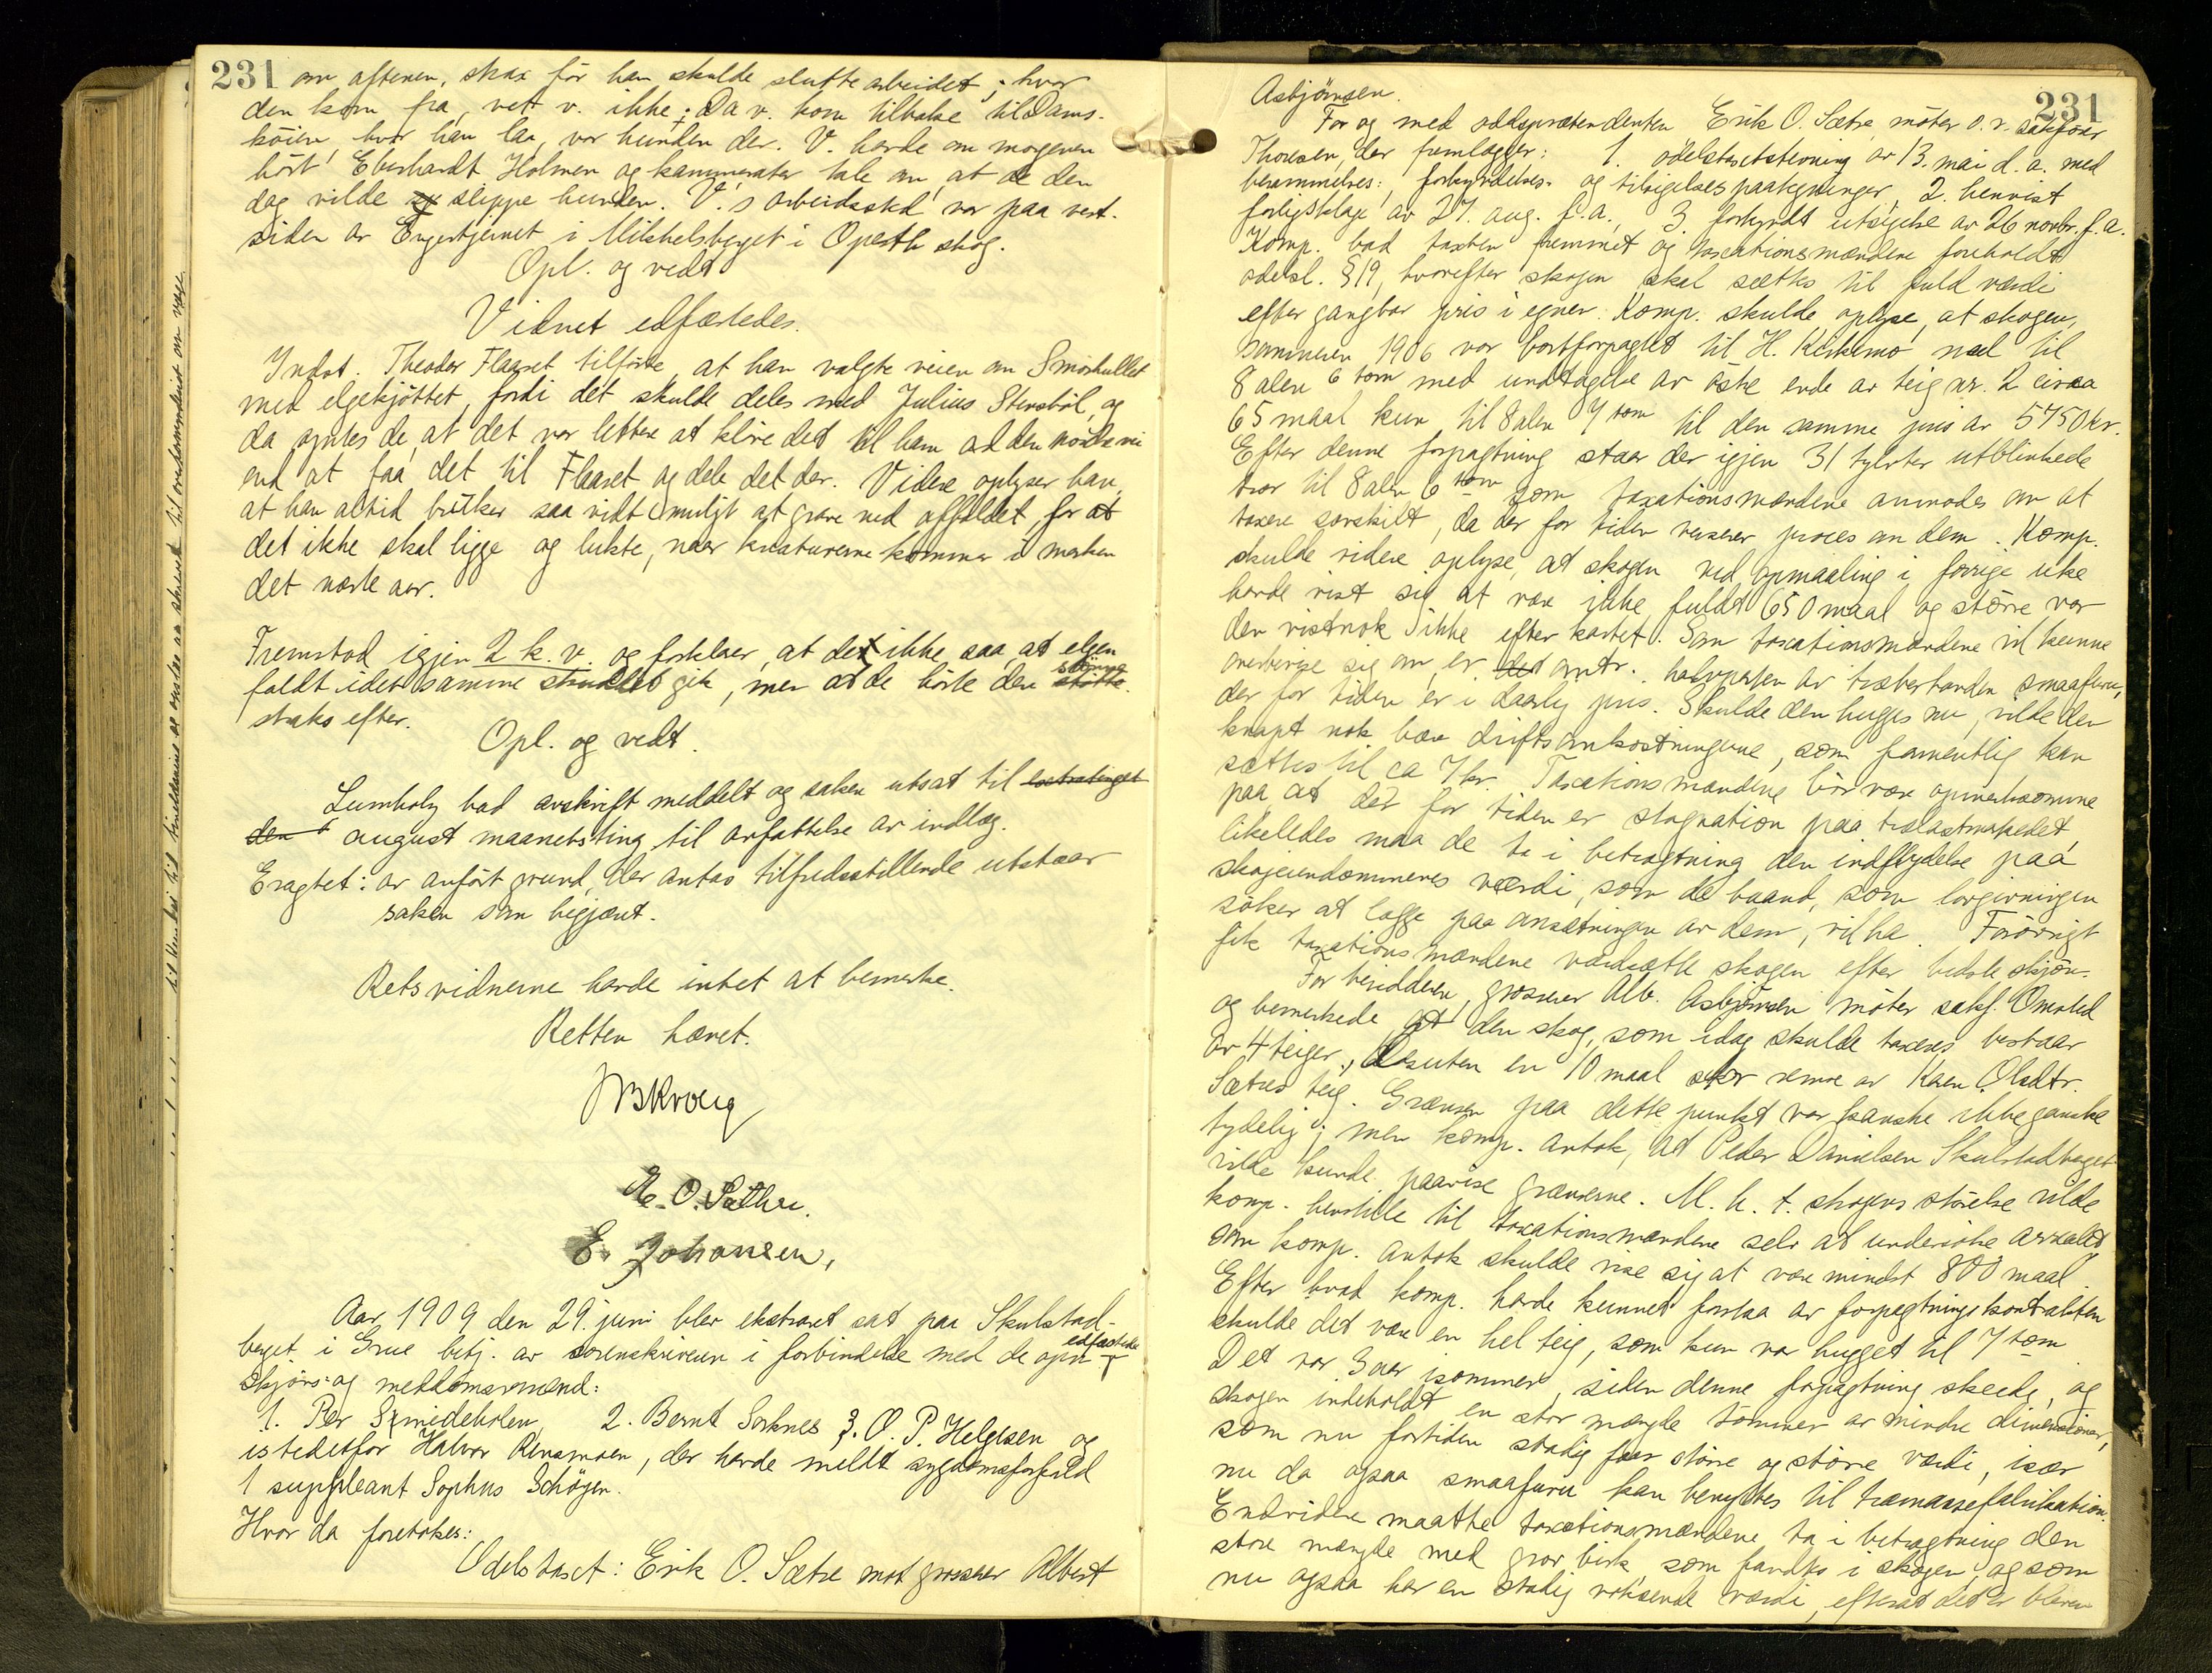 231 om aftenen, strax før han skulde slutte arbeidet; hvor
den kom fra, vet v. ikke; Da v. kom tilbake til Dams-
köien, hvor han laa, var hunden der. V. havde om morgenen
hört Eberhardt Holmen og kammerater tale om, at de den
dag vilde slippe hunden. V.s arbeidssted var paa vest-
siden av Engertjernet i Mikkelsberget i Opseth skog.
Opl. og vedt
Vidnet edfæstedes.
Indst. Theodor Flaaset tilförte, at han valgte veien om Smörhullet
med elgekjöttet, fordi det skulde deles med Julius Stensböl, og
da syntes de, at det var lettere at klöve det til ham ad den nordre vei
end at faa det til Flaaset og dele det der. Videre oplyser han,
at han altid bruker saa vidt muligt at grave ned affaldet, for at
det ikke skal ligge og lukte, naar kreaturerne kommer i marken
det næste aar.
Fremstod igjen 2 k. v. og forklarer, at det ikke saa, at elgen
faldt i det samme skuddet gik, men at de hörte den stönne
straks efter.
Opl. og vedt.
Lumholz bad avskrift meddelt og saken utsat til extratinget
den august maanedsting til avfattelse av indlæg.
Eragtet: av anfört grund, der antas tilfredsstillende utstaar
saken som begjært.
Retsvidnerne havde intet at bemerke.
Retten hævet.
E. O. Sæther.
E. Johansen,
Aar 1909 den 29. juni blev ekstraret sat paa Skulstad-
berget i Grue betj. av sorenskriveren i forbindelse med de opn. edfæstede
skjöns- og meddomsmænd:
1. Per Smideholen, 2. Bernt Sorknes 3. O. P. Helgesen og
istedetfor Halvor Rensmoen, der havde meldt sygdomsforfald
1 suppleant Sophus Schöyen.
Hvor da foretokes:
Odelstaxt: Erik O. Sætre mot grosserer Albert
231
Asbjörnsen.
For og med oddspretendenten Erik O. Sætre möter o.r. sakförer
Thoresen, der fremlægger: 1. odelstaxtstevning av 13. mai d. a. med
berammelses-, forkyndelses- og tilsigelsespaategninger, 2. henvist
forligsklage av 27. aug. f.a., 3. forkyndt utsigelse av 26 novbr. f. a.
Komp. bad taxten fremmet og taxationsmændene foreholdt
odelsl. § 19, hvorefter skogen skal sættes til fuld værdi
efter gangbar pris i egnen. Komp. skulde oplyse, at skogen,
sommeren 1906 var bortforpagtet til H. Kirkemo ned til
8 alen 6 tom med undtagelse av östre ende av teig nr. 2 circa
65 maal kun til 8 alen 7 tom til den samme pris av 5750 kr.
Efter denne forpagtning staar der igjen 31 tylvter utblinkede
trær til 8 alen 6 tom som taxationsmændene anmodes om at
taxere særskilt, da der for tiden verserer proces om dem. Komp.
skulde videre oplyse, at skogen ved opmaaling i forrige uke
havde vist sig at være ikke fuldt 650 maal og större var
den vistnok ikke efter kartet. Som taxationsmændene vil kunne
overbevise sig om, er det omtr. halvparten av træbestanden smaafuru,
der for tiden er i daarlig pris. Skulde den hugges nu, vilde den
knapt nok bære driftsomkostningerne, som formentlig kan
sættes til ca 7 kr. Taxationsmændene bör være opmerksomme
paa at der for tiden er stagnation paa trælastmarkedet,
likeledes maa de ta i betragtning den indflydelse paa
skogeiendommenes værdi, som de baand, som lovgivningen
söker at lægge paa omsætningen av dem, vil ha. Forövrigt
fik taxationsmændene værdsætte skogen efter bedste skjön.
For besidderen, grosserer Alb. Asbjörnsen möter sakf. Omsted
og bemerkede, at den skog, som idag skulde taxeres bestaar
av 4 teiger, desuten en 10 maal stor remse av Karen Olsdtr.
Sætres teig. Grænsen paa dette punkt var kanske ikke ganske
tydelig; men komp. antok, at Peder Danielsen Skulstadberget
vilde kunde paavise grænserne. M. h. t. skogens störelse vilde
komp. henstille til taxationsmændene selv at undersöke arealet
som komp. antok skulde vise sig at være mindst 800 maal.
Efter hvad komp. havde kunnet forstaa av forpagtningskontrakten
skulde det være en hel teig, som kun var hugget til 7 tom
Det var 3 aar isommer, siden denne forpagtning skeede, og
skogen indeholdt en stor mængde tömmer av mindre dimensioner,
som nu fortiden stadig faar större og större værdi, især
nu da ogsaa smaafuru kan benyttes til træmassefabrikation.
Endvidere maatte taxationsmændene ta i betragtning den
store mængde med grov birk, som fandtes i skogen, og som
nu ogsaa har en stadig voksende værdi, efterat det er bleven